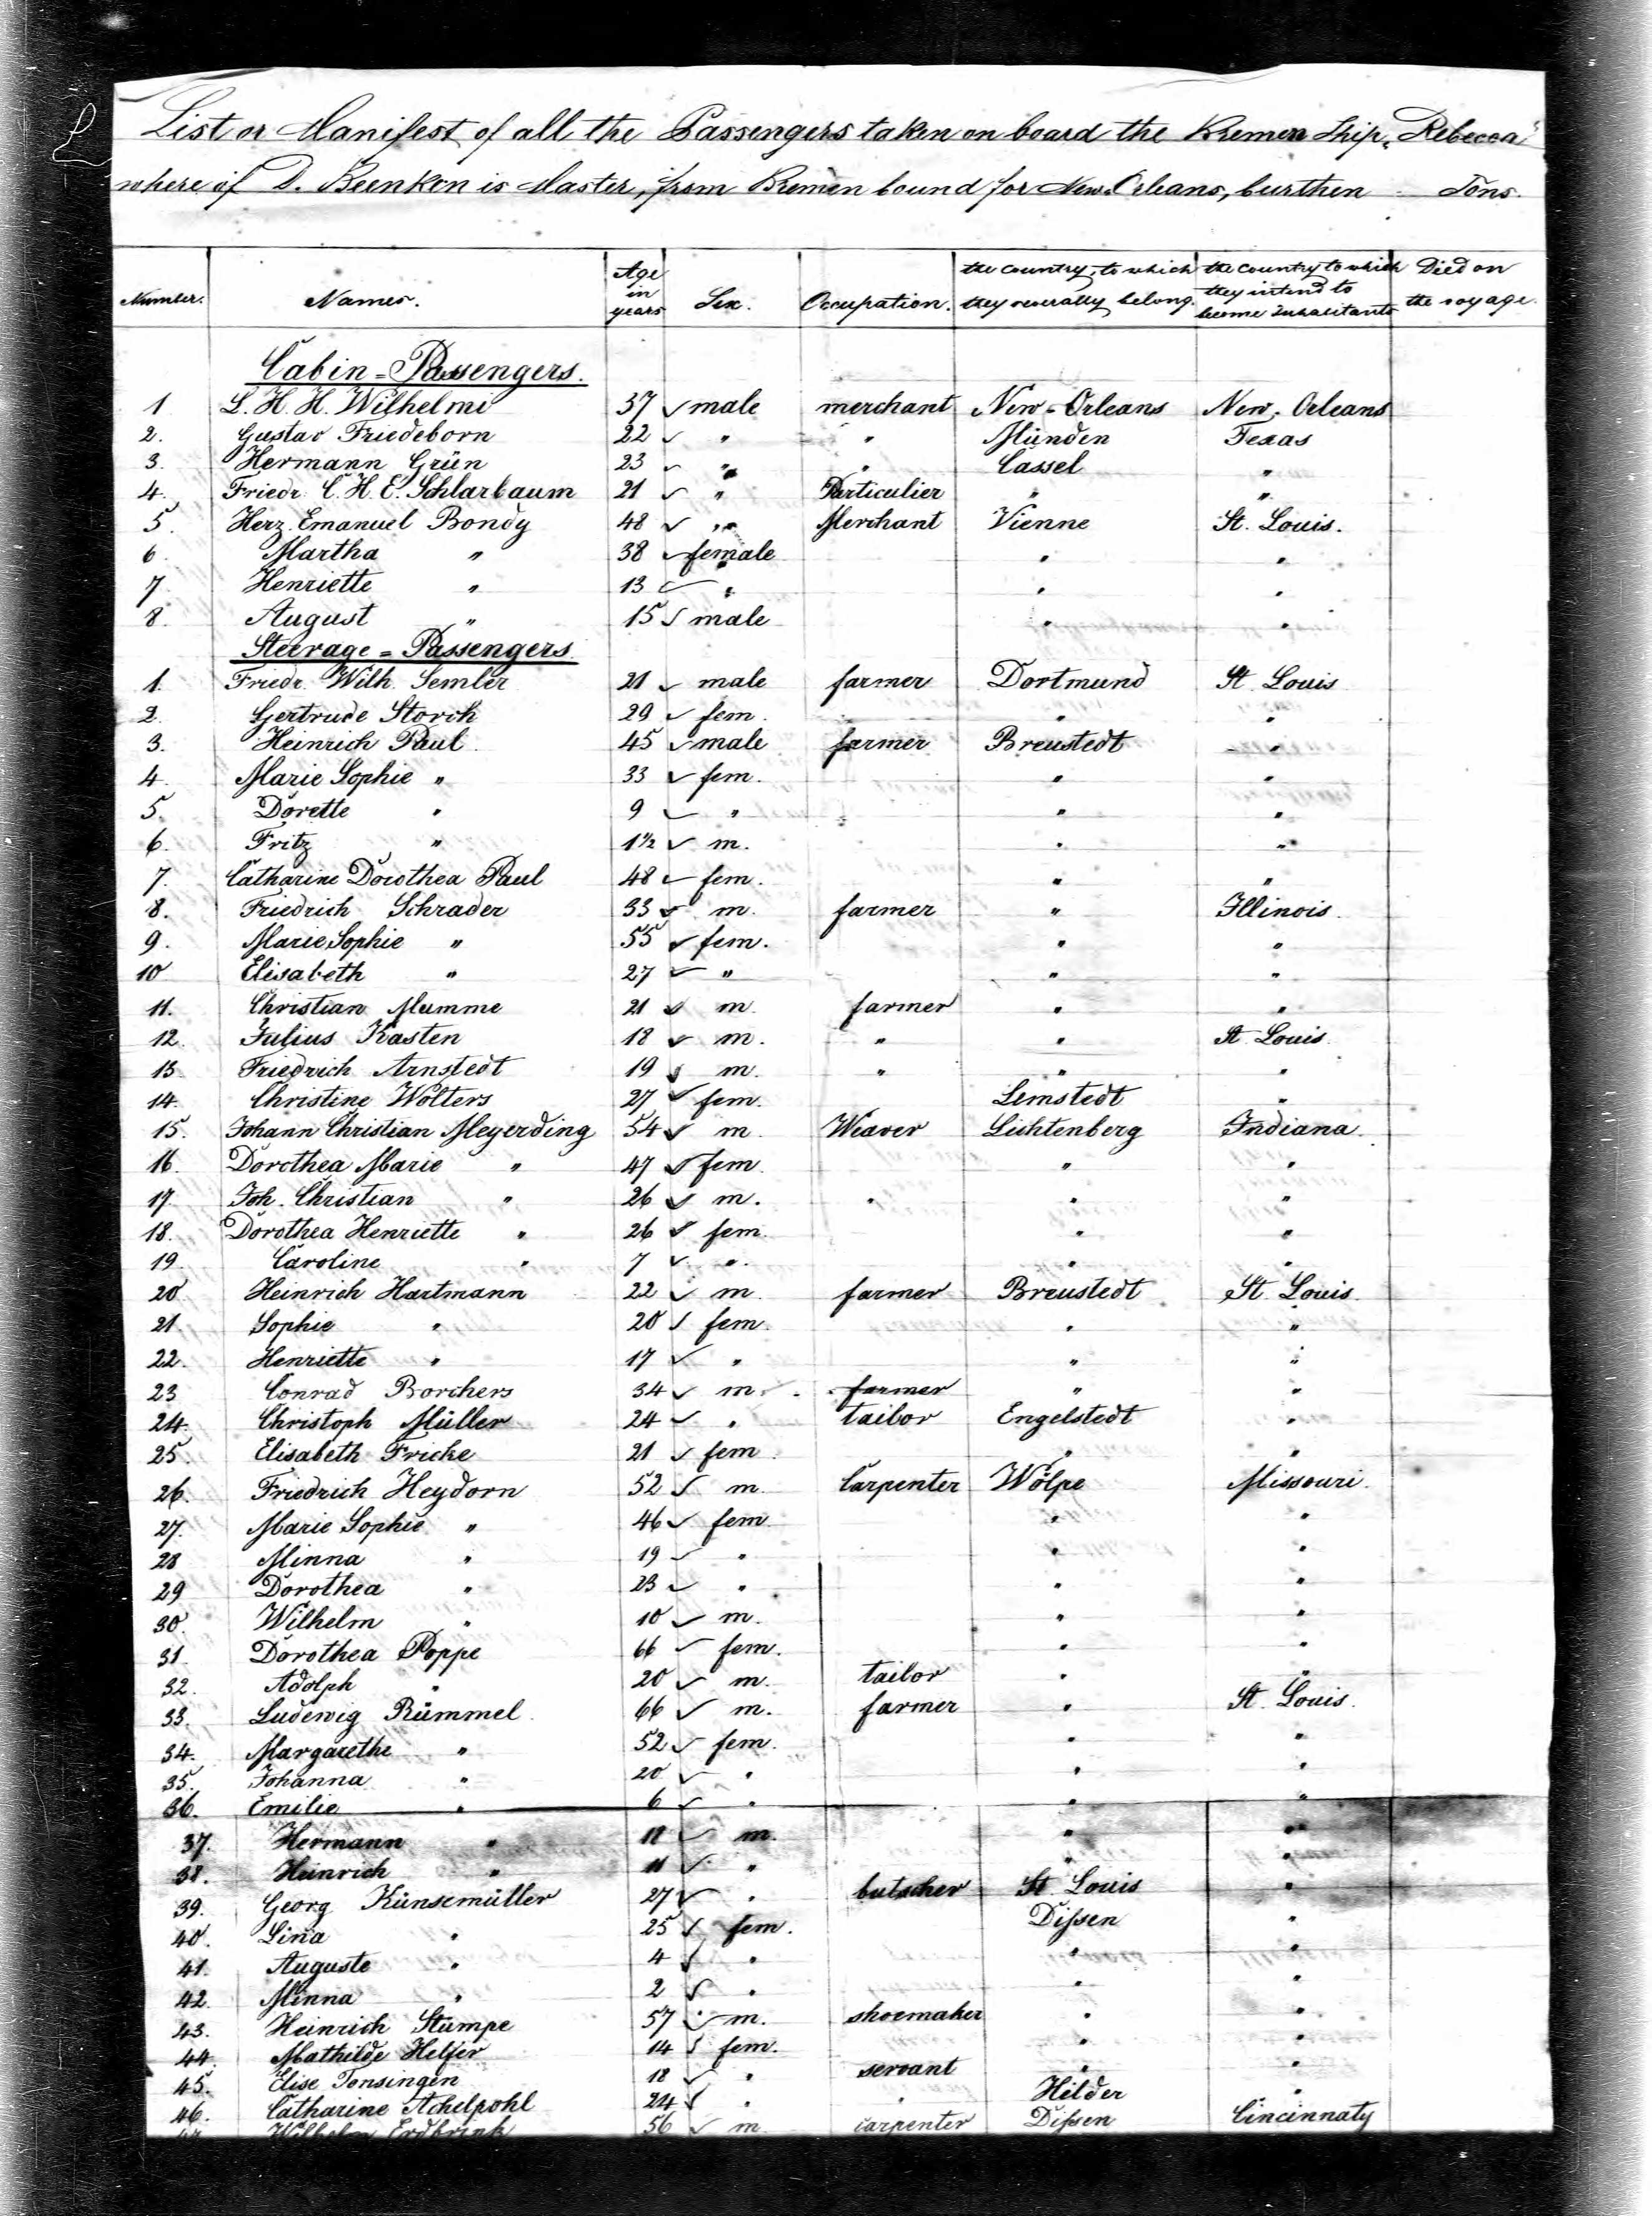 List or Manifest of all the Passengers taken on board the Bremen Ship „Rebecca"
where of D. Beenken is Master, from Bremen bound for New-Orleans, burthen Tons.
Number. Names. Age in years Sex. Occupation. the country, to which they severally belong. the country to which they intend to become Inhabitants Died on the voyage.
Cabin=Passengers.
1 L. H. H. Wilhelmi 37 male merchant New-Orleans New-Orleans
2. Gustav Friedeborn 22 " " Münden Texas
3. Hermann Grün 23 " " Cassel "
4. Friedr. C. H. E. Schlarbaum 21 " Particulier " "
5. Herz Emanuel Bondy 48 " Merchant Vienne St. Louis.
6 Martha " 38 female " "
7 Henriette " 13 " " "
8. August " 15 male " "
Steerage=Passengers.
1. Friedr. Wilh. Semler 21 male farmer Dortmund St. Louis
2. Gertrude Storch 29 fem. " "
3. Heinrich Paul 45 male farmer Breustedt "
4. Marie Sophie " 33 fem. " "
5. Dorette " 9 " " "
6. Fritz " 1 1/2 m. " "
7. Catharine Dorothea Paul 48 fem. " "
8. Friedrich Schrader 33 m. farmer " Illinois.
9. Marie Sophie " 55 fem. " "
10 Elisabeth " 27 " " "
11. Christian Mumme 21 m. farmer " "
12. Julius Kasten 18 m. " " St. Louis.
13. Friedrich Arnstedt 19 m. " " "
14. Christine Wolters 27 fem. Lemstedt "
15. Johann Christian Meyerding 54 m. Weaver Lichtenberg Indiana.
16. Dorothea Marie " 47 fem. " "
17. Joh. Christian " 26 m. " " "
18. Dorothea Henriette " 26 fem. " "
19. Caroline " 7 " " "
20. Heinrich Hartmann 22 m. farmer Breustedt St. Louis.
21. Sophie " 20 fem. " "
22. Henriette " 17 " " "
23 Conrad Borchers 34 m. farmer " "
24. Christoph Müller 24 " tailor Engelstedt "
25. Elisabeth Fricke 21 fem. " "
26. Friedrich Heydorn 52 m. Carpenter Wölpe Missouri.
27. Marie Sophie " 46 fem. " "
28 Minna " 19 " " "
29 Dorothea " 23 " " "
30. Wilhelm " 10 m. " "
31. Dorothea Poppe 66 fem. " "
32. Adolph " 20 m. tailor " "
33. Ludewig Rümmel 66 m. farmer " St. Louis.
34. Margarethe " 52 fem. " "
35. Johanna " 20 " " "
36. Emilie " 6 " " "
37. Hermann " 18 m. " "
38. Heinrich " 11 " " "
39. Georg Künsemüller 27 " butscher St Louis "
40. Lina " 25 fem. Dißen "
41. Auguste " 4 " " "
42. Minna " 2 " " "
43. Heinrich Stumpe 57 m. shoemaker " "
44. Mathilde Helfer 14 fem. " "
45. Elise Tonsingen 18 " servant " "
46. Catharine Achelpohl 24 " " Hilder "
Wilhelm Erdbrink 56 m. carpenter Dißen Cincinnaty